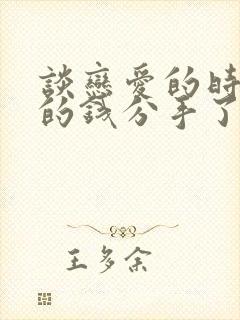 談戀愛的時
的錢分手了
王多余